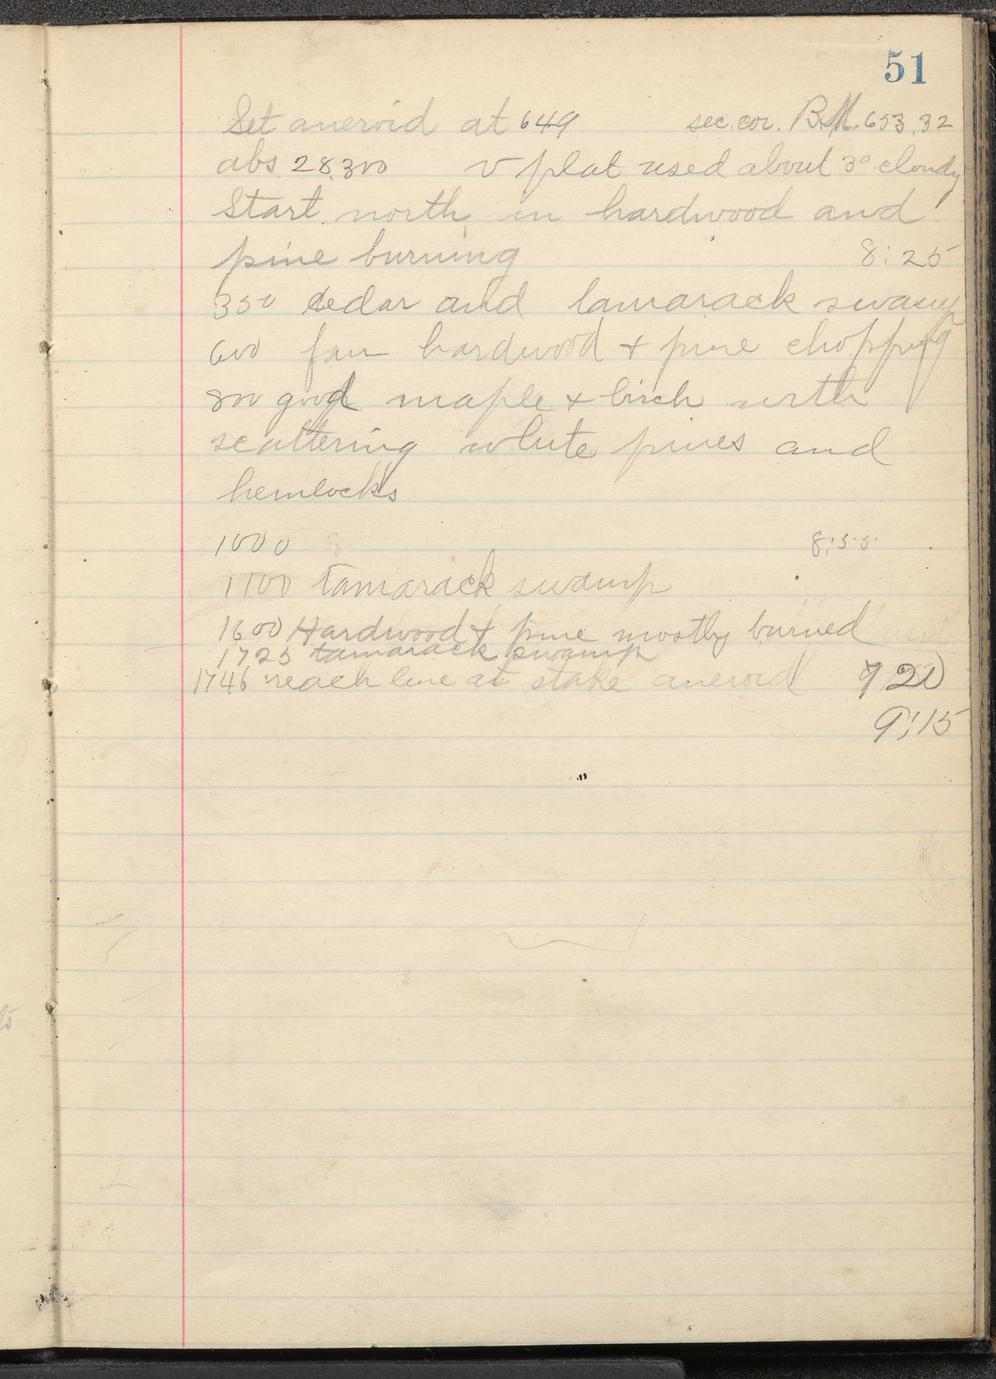 51
Set aneroid at 649 sec. cor. B.M. 653.32
abs 28.300 v plat used about 3° cloudy
Start north in hardwood and
pine burning 8:25
350 cedar and tamarack swamp
600 fair hardwood + pine chopping
800 good maple + birch with
scattering white pines and
hemlocks
1000 8:55
1100 tamarack swamp
1600 Hardwood + pine mostly burned
1725 tamarack swamp
1746 reach line at stake aneroid 720
9:15